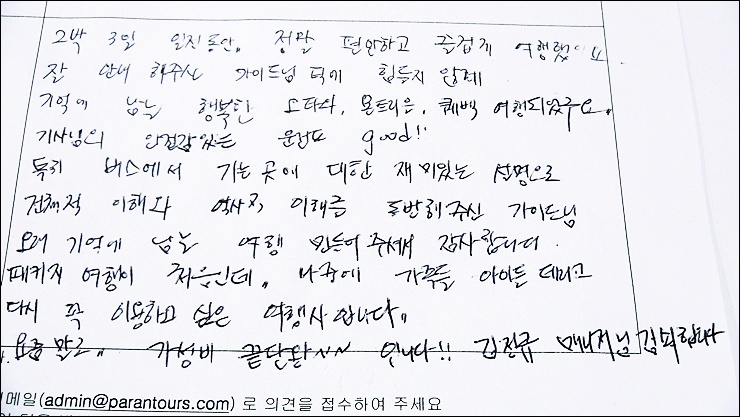 2박 3일 일정동안. 정말 편안하고 즐겁게 여행했어요
잘 안내 해주신 가이드님 덕에 힘들지 않게
기억에 남는 행복한 오타와, 몬트리올, 퀘백 여행되었구요.
기사님의 안정감있는 운전도 good!!
특히 버스에서 가는 곳에 대한 재미있는 설명으로
전체적 이해와 역사적 이해를 동반해주신 가이드님
오래 기억에 남는 여행 만들어주셔서 감사합니다.
패키지 여행이 처음인데, 나중에 가족들 아이들 데리고
다시 꼭 이용하고 싶은 여행사 입니다.
요즘말로. 가성비 끝단왕~~ 입니다!! 매니저님
메일(admin@parantours.com) 로 의견을 접수하여 주세요